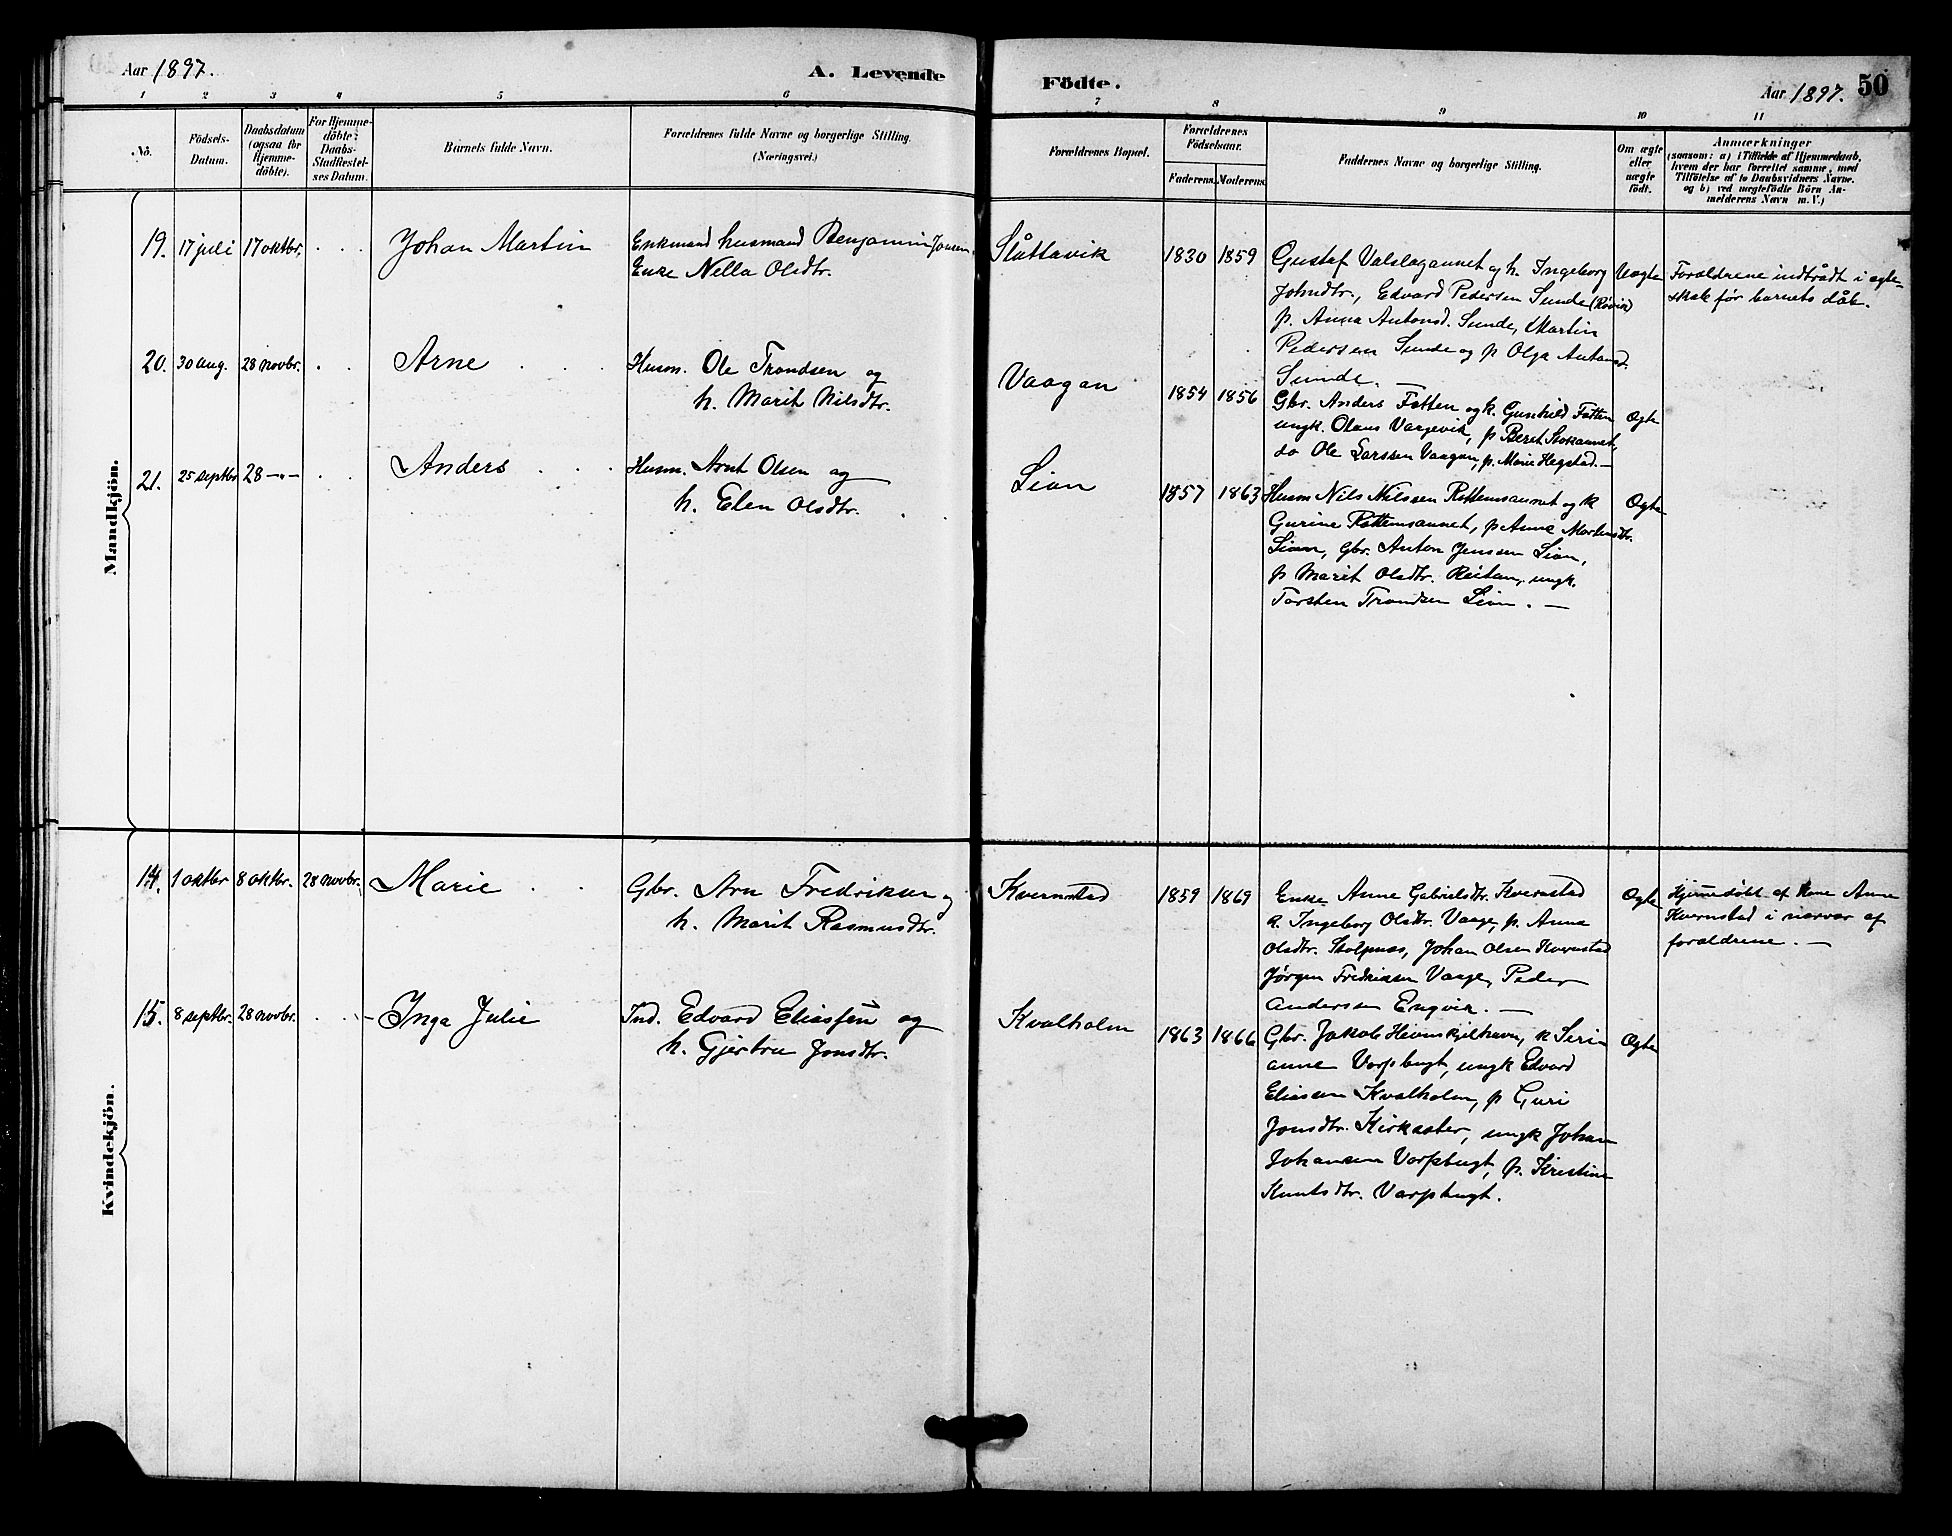 Aar 1897.
A. Levende
Födte.
Aar 1897. 50
1 2 3 4 5 6
7 8 9 10 11
No.
Födsels-
Datum.
Daabsdatum
(ogsaa for
Hjemme-
døbte).
For Hjemme-
døbte:
Daabs-
Stadfæstel-
ses Datum.
Barnets fulde Navn.
Forældrenes fulde Navne og borgerlige Stilling.
(Næringsvei.)
Forældrenes Bopæl.
Forældrenes
Födselsaar.
Faderens. Moderens.
Faddernes Navne og borgerlige Stilling.
Om ægte
eller
uægte
født.
Anmærkninger
(saasom: a) i Tilfælde af Hjemmedaab,
hvem der har forrettet samme, med
Tilföielse af to Daabsvidners Navne.
og b) ved uægtefödte Börn An-
melderens Navn m. V.)
Mandkjön.
19. 17 juli 17 oktbr. Johan Martin
Enkmand husmand Benjamin Jonsen,
Enke Nella Olsdtr.
Slåttavik 1830 1859
Gustaf Valslagaunet og h. Ingeborg
Johndtr., Edvard Pedersen Sunde (Røvik)
p. Anna Antonsd. Sunde, Martin
Pedersen Sunde og p Olga Antonsd.
Sunde. —
Uægte
Forældrene indtrådt i ægte-
skab før barnets dåb.
20. 30 aug. 28 novbr. Arne
Husm. Ole Trondsen og
h. Marit Nilsdtr.
Vaagan 1854 1856
Gbr. Anders Fatten og k. Gunhild Fatten
ungk. Olaus Vaagevik, p Beret Stokaunet,
do Ole Larssen Vaagan, p. Marie Hegstad. —
Ægte
21. 25 septbr 28 —"— Anders
Husm. Arnt Olsen og
h. Elen Olsdtr.
Lian 1857 1863
Husm Nils Nilssen Rottemsaunet og k
Gurine Rottemsaunet, p Anna Martinsdtr.
Lian, Gbr. Anton Jenssen Lian,
p Marit Olsdtr. Reitan, ungk.
Torsten Trondsen Lian. —
Ægte
Kvindekjön.
14. 1 oktbr 8 oktbr. 28 novbr. Marie
Gbr. Arn Fredriksen og
h. Marit Rasmusdtr.
Kvernstad 1859 1869
Enke Anne Gabrielsdtr. Kvernstad
k. Ingeborg Olsdtr. Vaage, p. Anna
Olsdtr. Stolpnes, Johan Olsen Kvernstad
Jørgen Fredriksen Vaage, Peder
Andersen Engvik. —
Ægte
Hjemmedøbt af kone Anne
Kvernstad i nærvær af
forældrene. —
15. 8 septbr. 28 novbr. Inga Julie
Ind. Edvard Eliassen og
h. Gjertru Jonsdtr.
Kvalholm 1863 1866
Gbr. Jakob Heimskjelhavn, k Seri-
anne Vorpbugt, ungk Edvard
Eliassen Kvalholm, p Guri
Jonsdtr. Kirksæter, ungk Johan
Johansen Vorpbugt, p. Kirstine
Knutsdtr. Vorpbugt.
Ægte